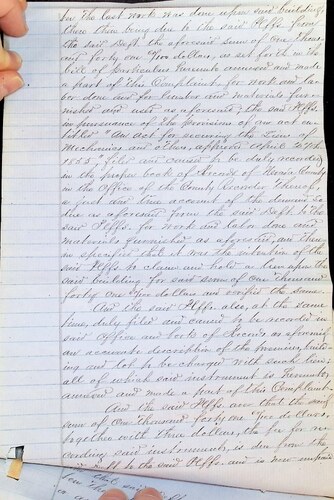 for the last work was done upon said building
there then being due to the said Plffs. from
the said Deft. the aforesaid sum of One Thous-
and forty one Two dollars, as set forth in the
bill of particulars hereunto annexed and made
a part of this Complaint, for work and la-
bor done and for lumber and materials fur-
nished and used as aforesaid; the said Plffs.
in pursuance of the provisions of an act en-
titled "An Act for securing the Liens of
Mechanics and others, approved April
1855", filed and caused to be duly recorded
in the proper book of Records of County
in the Office of the County Recorder thereof,
a just and true account of the demand so
due as aforesaid from the said Deft. to the
said Plffs. for work and labor done and
materials furnished as aforesaid, and therein
specified that it was the intention of the
said Plffs to claim and hold a lien upon the
said building for said sum of One Thousand
forty one Two dollars and the same.
And the said Plffs. also, at the same
time, duly filed and caused to be recorded in
said Office and book of Records as aforesaid,
an accurate description of the premises, build-
ing and lot to be charged with such lien,
all of which said instrument is hereunto
annexed and made a part of this Complaint.
And the said Plffs aver that the said
sum of One Thousand forty one Two dollars,
together with three dollars, the fee for re-
cording said instruments, is due from the
said Deft to the said Plffs. and is now unpaid